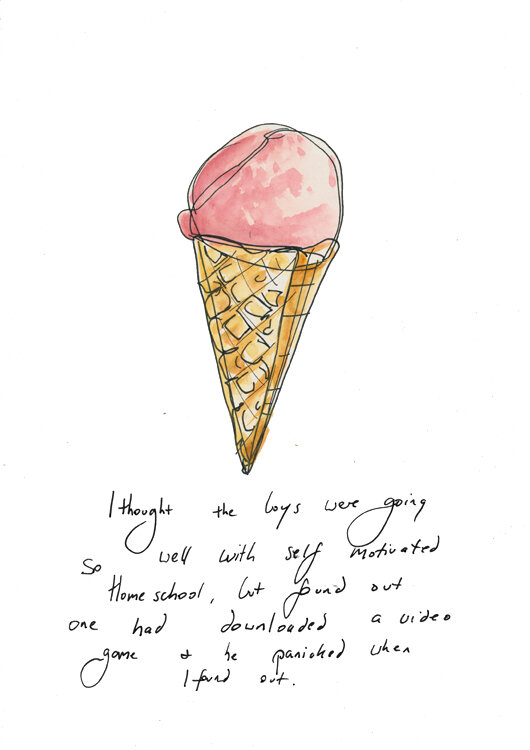 I thought the boys were going
so well with self motivated
Home school, but found out
one had downloaded a video
game & he panicked when
I found out.